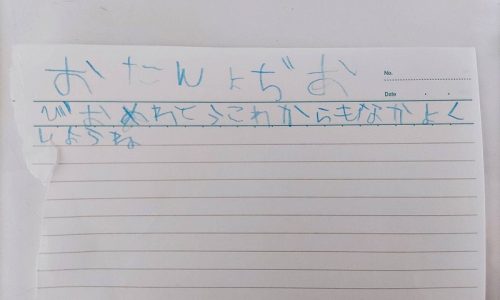 おたんよぢお
No.
Date
びおめわてうこれからもなかよく
しようね